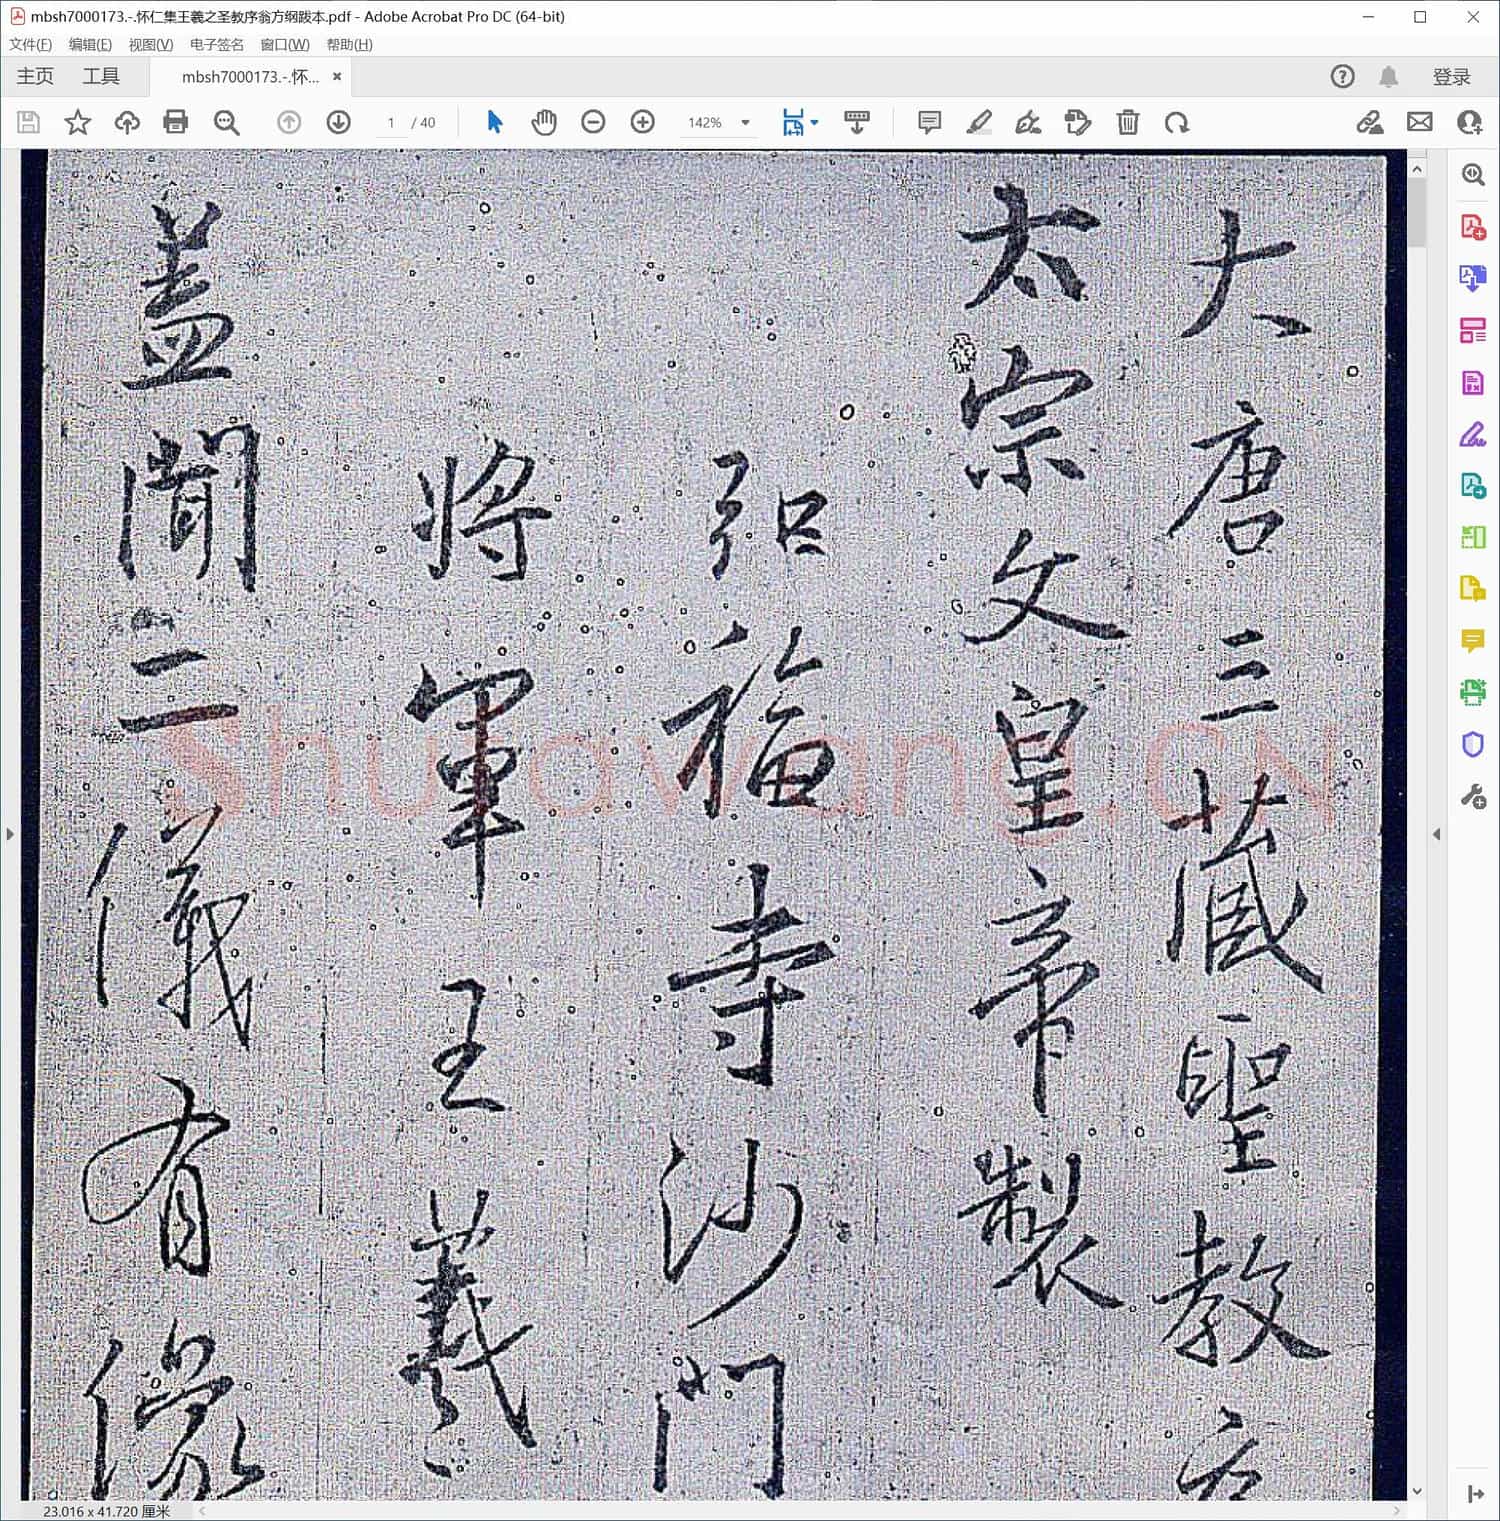 mbsh7000173.-.怀仁集王羲之圣教序翁方纲跋本.pdf - Adobe Acrobat Pro DC (64-bit)
文件(F) 编辑(E) 视图(V) 电子签名 窗口(W) 帮助(H)
主页 工具 mbsh7000173.-.怀... × 登录
1 / 40 142%
大唐三藏聖教序
太宗文皇帝製
弘福寺沙門
將軍王羲
蓋聞二儀有像
Shufawang.CN
23.016 x 41.720 厘米